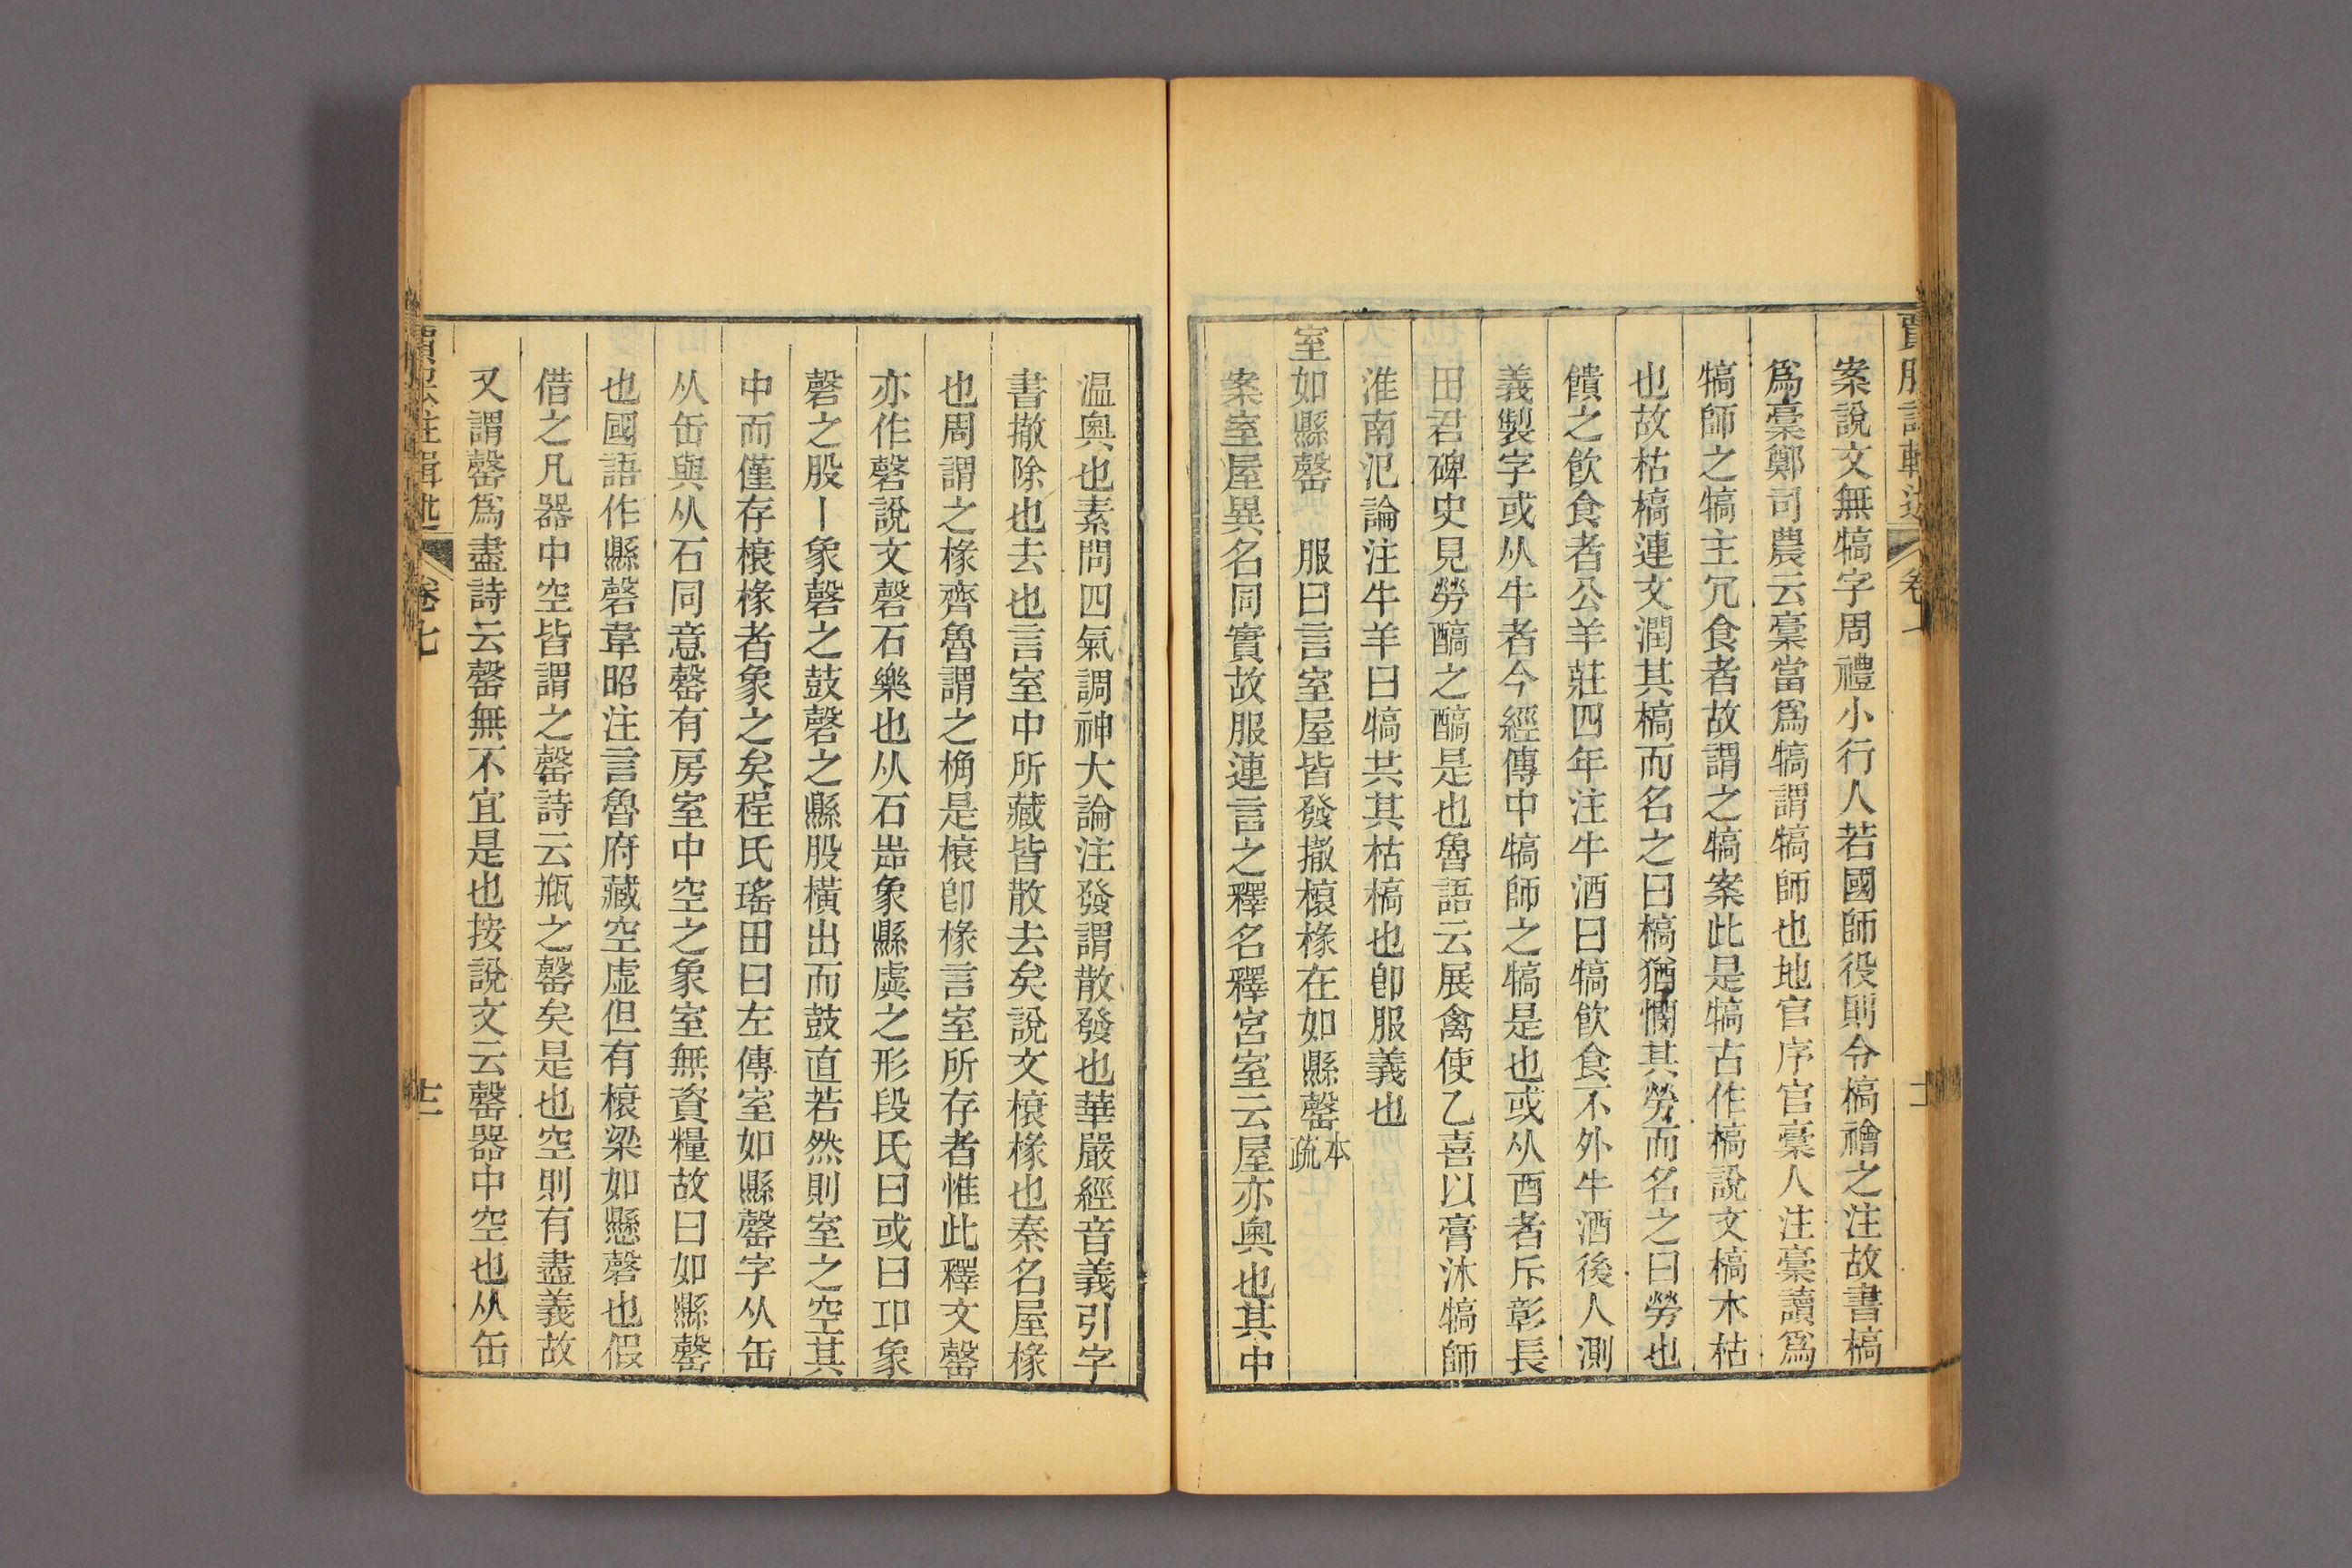 案說文無犒字周禮小行人若國師役則令槁禬之注故書槁
爲稾鄭司農云稾當爲犒謂犒師也地官序官稾人注稾讀爲
犒師之犒主冗食者故謂之犒案此是犒古作槁說文槁木枯
也故枯槁連文潤其槁而名之曰槁猶憪其勞而名之曰勞也
饋之飲食者公羊莊四年注牛酒曰犒飲食不外牛酒後人測
義製字或从牛者今經傳中犒師之犒是也或从酉者斥彰長
田君碑史見勞醕之醕是也魯語云展禽使乙喜以膏沐犒師
淮南氾論注牛羊曰犒共其枯槁也卽服義也
室如縣罄 服曰言室屋皆發撤榱椽在如縣罄本疏
案室屋異名同實故服連言之釋名釋宮室云屋亦奧也其中
温奧也素問四氣調神大論注發謂散發也華嚴經音義引字
書撤除也去也言室中所藏皆散去矣說文榱椽也秦名屋椽
也周謂之椽齊魯謂之桷是榱卽椽言室所存者惟此釋文罄
亦作磬說文磬石樂也从石耑象縣虡之形段氏曰或曰卬象
磬之股丨象磬之鼓磬之縣股橫出而鼓直若然則室之空其
中而僅存榱椽者象之矣程氏瑤田曰左傳室如縣罄字从缶
从缶與从石同意罄有房室中空之象室無資糧故曰如縣罄
也國語作縣磬韋昭注言魯府藏空虛但有榱梁如懸磬也假
借之凡器中空皆謂之罄詩云瓶之罄矣是也空則有盡義故
又謂罄爲盡詩云罄無不宜是也按說文云罄器中空也从缶
卷七
十二